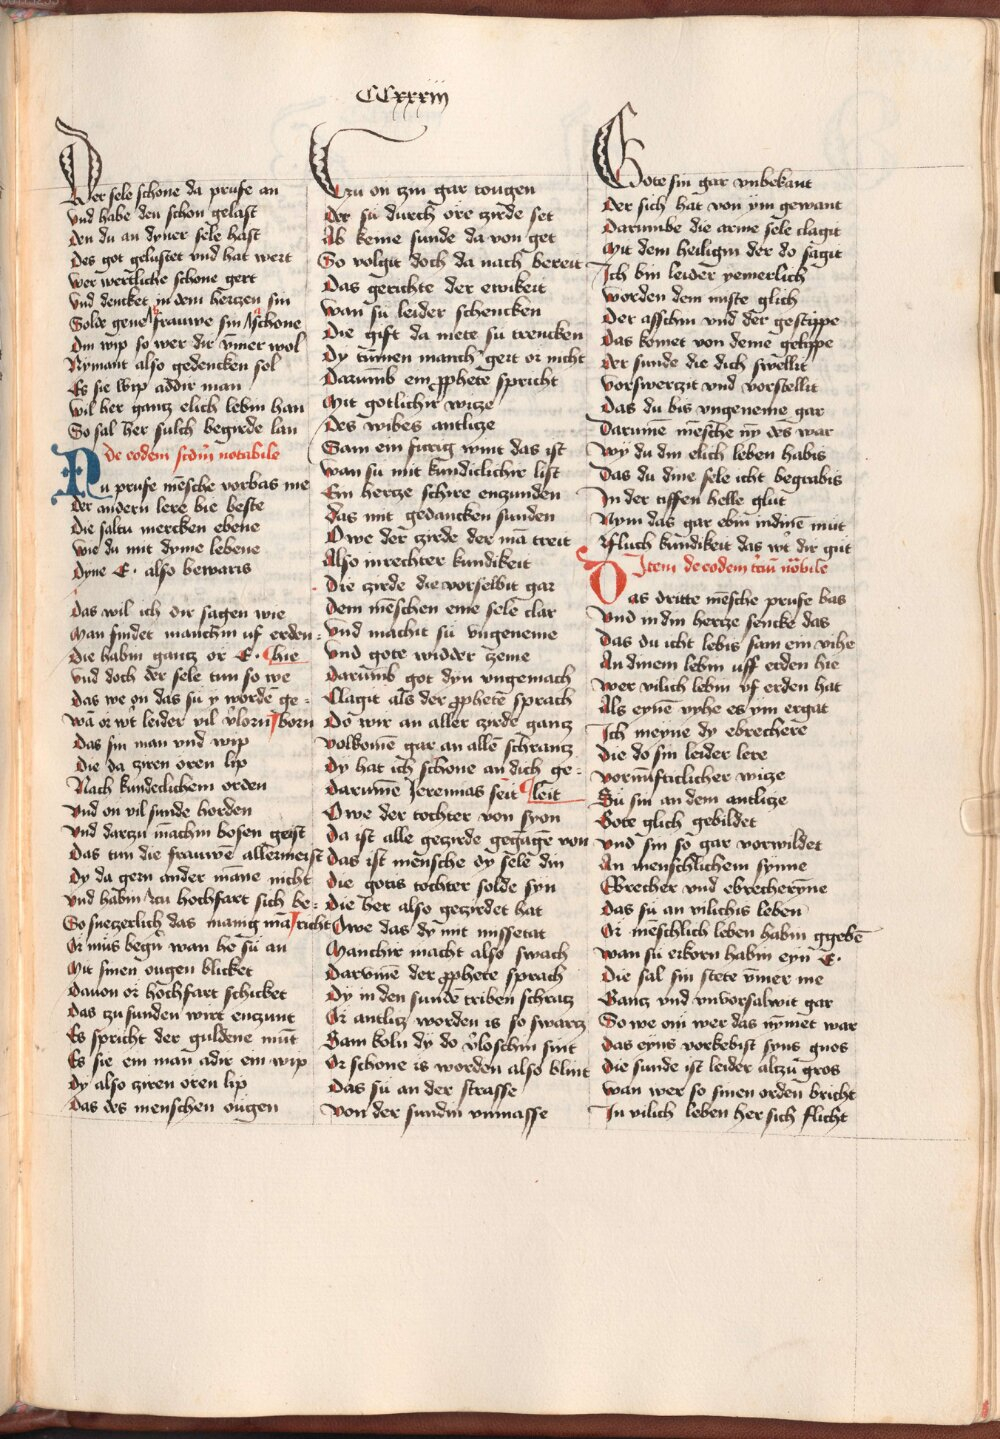 CCxxxiij
Der sele schone da prufe an
Vnd habe den schon gelast
Den du an dyner sele hast
Des got gelustet vnd hat wert
Wer wertliche schone gert
Vnd dencket in dem hertzen sin
Solde gene frauwe sin schone
Din wip so wer dir ym̄er wol
Nymant also gedencken sol
Es sie wip addir man
Wil her gantz elich lebin han
So sal her sulch begirde lan
De eodem scdm̄ notabile
Nu prufe mēsche vorbas me
Der andern lere bie beste
Die saltu mercken ebene
Wie du mit dyme lebene
Dyne E. also bewaris
Das wil ich dir sagen wie
Man findet manchin uf erden
Die habin gantz or E. hie
Vnd doch der sele tun so we
Das we on das sü y wordē ge-
Wā or wt leider vil vlorn born
Das sin man vnd wip
Die da ziren oren lip
Nach kundeclichem orden
Vnd on vil sunde horden
Vnd dartzu machin bosen geist
Das tun die frauwē allermeist
Dy da gern ander mane nicht
Vnd habin zcu hochfart sich be-
So suetzerlich das manig mā richt
Or mus begn̄ wan he sü an
Mit sinen ougen blicket
Dauon or hochfart schicket
Das zu sunden wirt enzunt
Es spricht der guldene mūt
Es sie ein man adir ein wip
Dy also ziren oren lip
Das des menschen ougen
Tzu on tzin gar tougen
Der sü durch ore zirde set
Ab keine sunde da von get
So volgit doch da nach bereit
Das gerichte der ewikeit
Wan sü leider schencken
Die gift da mete sü trencken
Dy tūmen manch gert or nicht
Darumb ein pphete spricht
Mit gotlichir witze
Des wibes antlitze
Sam ein furig wint das ist
Wan sü mit kundiclichir list
Ein hertze schire enzunden
Das mit gedancken sunden
Owe der zirde der mā treit
Also inrechter kundikeit
Die zirde die vorselbit gar
Dem menschen eine sele clar
Vnd machit sü vngeneme
Vnd gote widder zeme
Darumb got dyn vngemach
Clagit als der pphetē sprach
Do wir an aller zirde gantz
Volkomē gar an allē schrantz
Dy hat ich schone an dich ge-
Darumē Jeremias seit leit
Owe der tochter von syon
Da ist alle gezirde gegāgē von
Das ist mensche dy sele din
Die gotis tochter solde syn
Die her also gezirdet hat
Owe das dy mit missetat
Manchir macht also swach
Darvmē der pphete sprach
Dy in den sundē triben schratz
Or antlitz worden is so swartz
Sam koln dy do vloschin sint
Or schone is worden also blint
Das sü an der strasse
Von der sundin vnmasse
Gote sin gar vnbekant
Der sich hat von ym gewant
Darumbe die arme sele clagit
Mit dem heiligin der do sagit
Ich bin leider yemerlich
Worden dem miste glich
Der asschin vnd der gestippe
Das komet von deme gelippe
Der sunde die dich swellit
Vorswertzit vnd vorstellit
Das du bis vngeneme gar
Darumē mēsche nȳ des war
Wy du din elich leben habis
Das du dine sele icht begrabis
In der tiffen helle glut
Nym das gar ebin indinē mut
Fluch kundikeit das wt dir gut
Item de eodem tciū nōbile
Das dritte mēsche prufe bas
Vnd in din hertze sencke das
Das du icht lebis sam ein vihe
An dinem lebin uff erden hie
Wer vilich lebin vf erden hat
Als eynē vyhe es ym ergat
Ich meyne dy ebrechere
Die do sin leider lere
Vornūfticlicher witze
Sü sin an dem antlitze
Gote glich gebildet
Vnd sin so gar vorwildet
An menschlichem synne
Ebrecher vnd ebrecherȳne
Das sü an vilichis leben
Or mēschlich leben habin ggebē
Wan sü erkorn habin eyn E.
Die sal sin stete ym̄er me
Gantz vnd vnvorsalwit gar
So we om wer das nymet war
Das eyns vorkebist syns gnos
Die sunde ist leider altzu gros
Wan wer so sinen orden bricht
In vilich leben her sich flicht